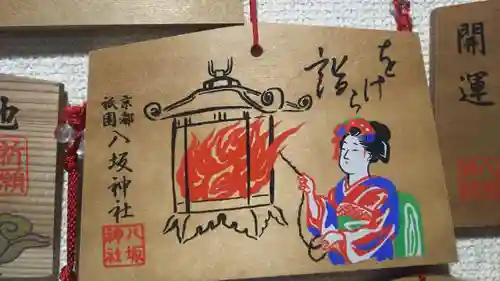 開運
をけら
詣
京都
祇園
八坂神社
八坂
神社
祈願